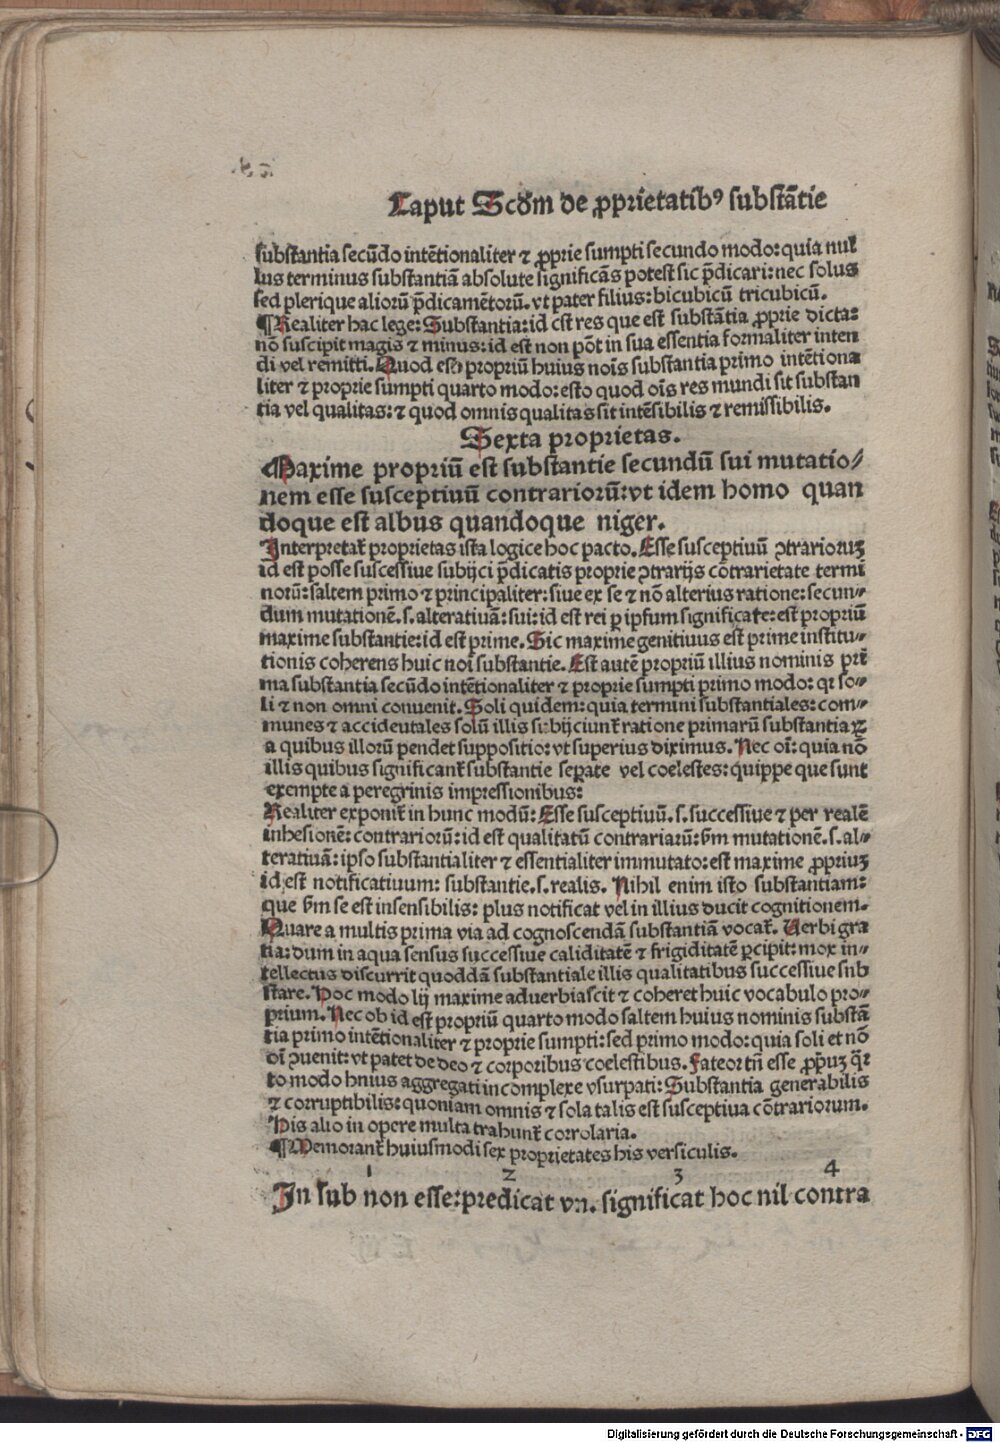 Caput Scd̄m de ꝓprietatibꝰ substātie
substantia secūdo intētionaliter ⁊ ꝓprie sumpti secundo modo: quia nul
lus terminus substantiā absolute significās potest sic p̄dicari: nec solus
sed plerique aliorū p̄dicamētorū. vt pater filius: bicubicū tricubicū.
¶ Realiter hac lege: Substantia: id est res que est substātia ꝓprie dicta:
nō suscipit magis ⁊ minus: id est non pōt in sua essentia formaliter inten
di vel remitti. Quod esꝫ propriū huius noīs substantia primo intētiona
liter ⁊ proprie sumpti quarto modo: esto quod oīs res mundi sit substan
tia vel qualitas: ⁊ quod omnis qualitas sit intēsibilis ⁊ remissibilis.
Sexta proprietas.
Maxime propriū est substantie secundū sui mutatio⸗
nem esse susceptiuū contrariorū: vt idem homo quan
doque est albus quandoque niger.
Interpretat᷑ proprietas ista logice hoc pacto. Esse susceptiuū ꝯtrarioruꝫ
id est posse successiue subijci p̄dicatis proprie ꝯtrarijs cōtrarietate termi
norū: saltem primo ⁊ principaliter: siue ex se ⁊ nō alterius ratione: secun⸗
dum mutationē. s. alteratiuā: sui: id est rei ꝑ ipsum significate: est propriū
maxime substantie: id est prime. Sic maxime genitiuus est prime institu⸗
tionis coherens huic noī substantie. Est autē propriū illius nominis pri
ma substantia secūdo intētionaliter ⁊ proprie sumpti primo modo: qꝛ so⸗
li ⁊ non omni conuenit. Soli quidem: quia termini substantiales: com⸗
munes ⁊ accidentales solū illis subijciunt᷑ ratione primarū substantiaꝝ
a quibus illorū pendet suppositio: vt superius diximus. Nec oī: quia nō
illis quibus significant᷑ substantie seperate vel coelestes: quippe que sunt
exempte a peregrinis impressionibus:
Realiter exponit᷑ in hunc modū: Esse susceptiuū. s. successiue ⁊ per realē
inhesionē: contrariorū: id est qualitatū contrariarū: ẜm mutationē. s. al⸗
teratiuā: ipso substantialiter ⁊ essentialiter immutato: est maxime ꝓpriuꝫ
id est notificatiuum: substantie. s. realis. Nihil enim isto substantiam:
que ẜm se est insensibilis: plus notificat vel in illius ducit cognitionem.
Quare a multis prima via ad cognoscendā substantiā vocat᷑. Uerbi gra
tia: dum in aqua sensus successiue caliditatē ⁊ frigiditatē ꝑcipit: mox in⸗
tellectus discurrit quoddā substantiale illis qualitatibus successiue sub
stare. Hoc modo lij maxime aduerbiascit ⁊ coheret huic vocabulo pro⸗
prium. Nec ob id est propriū quarto modo saltem huius nominis substā
tia primo intētionaliter ⁊ proprie sumpti: sed primo modo: quia soli et nō
oī ꝯuenit: vt patet de deo ⁊ corporibus coelestibus. Fateor tn̄ esse ꝓp̄uꝫ q̄r
to modo huius aggregati incomplexe vsurpati: Substantia generabilis
⁊ corruptibilis: quoniam omnis ⁊ sola talis est susceptiua cōtrariorum.
His alio in opere multa trahunt᷑ corrolaria.
¶ Memorant᷑ huiusmodi sex proprietates his versiculis.
1 2 3 4
In sub non esse: predicat vn. significat hoc nil contra
Digitalisierung gefördert durch die Deutsche Forschungsgemeinschaft - DFG